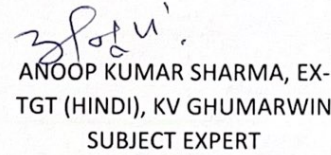 ANOOP KUMAR SHARMA, EX-
TGT (HINDI), KV GHUMARWIN
SUBJECT EXPERT